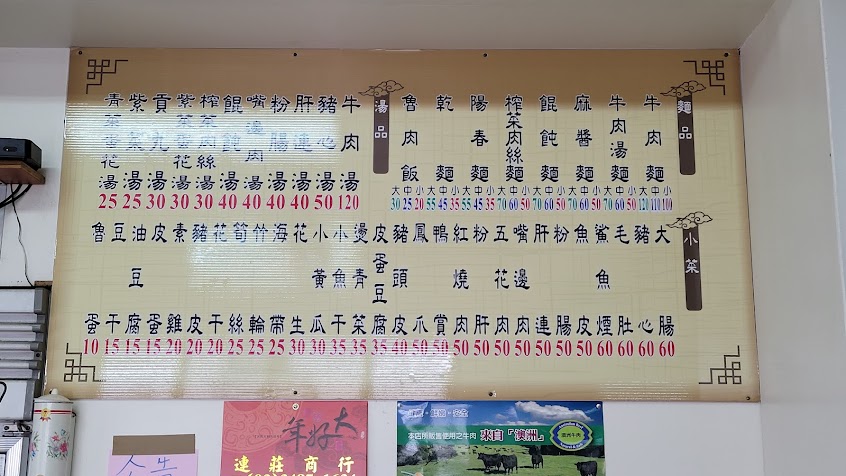 麵品
牛肉麵 大120 中110 小100
牛肉湯麵 大70 中60 小50
麻醬麵 大70 中60 小50
餛飩麵 大70 中60 小50
榨菜肉絲麵 大70 中60 小50
陽春麵 大55 中45 小35
乾麵 大55 中45 小35
魯肉飯 大30 中25 小20
湯品
牛肉湯 120
豬心湯 50
肝連湯 40
粉腸湯 40
嘴邊肉湯 40
餛飩湯 40
榨菜肉絲湯 30
紫菜蛋花湯 30
貢丸湯 30
紫菜湯 25
青菜蛋花湯 25
小菜
大腸 60
豬心 60
毛肚 60
鯊魚煙 60
魚皮 50
粉腸 50
肝連 50
嘴邊肉 50
五花肉 50
粉肝 50
紅燒肉 50
鴨賞 50
鳳爪 50
豬頭皮 40
皮蛋豆腐 35
燙青菜 35
小魚干 35
小黃瓜 30
花生 30
海帶 25
竹輪 25
筍絲 25
花干 25
豬皮 25
素雞 20
皮蛋 20
油豆腐 15
豆干 15
魯蛋 10
公告
大好年
連莊商行
安全
本店所販售使用之牛肉 來自「澳洲」
澳洲牛肉